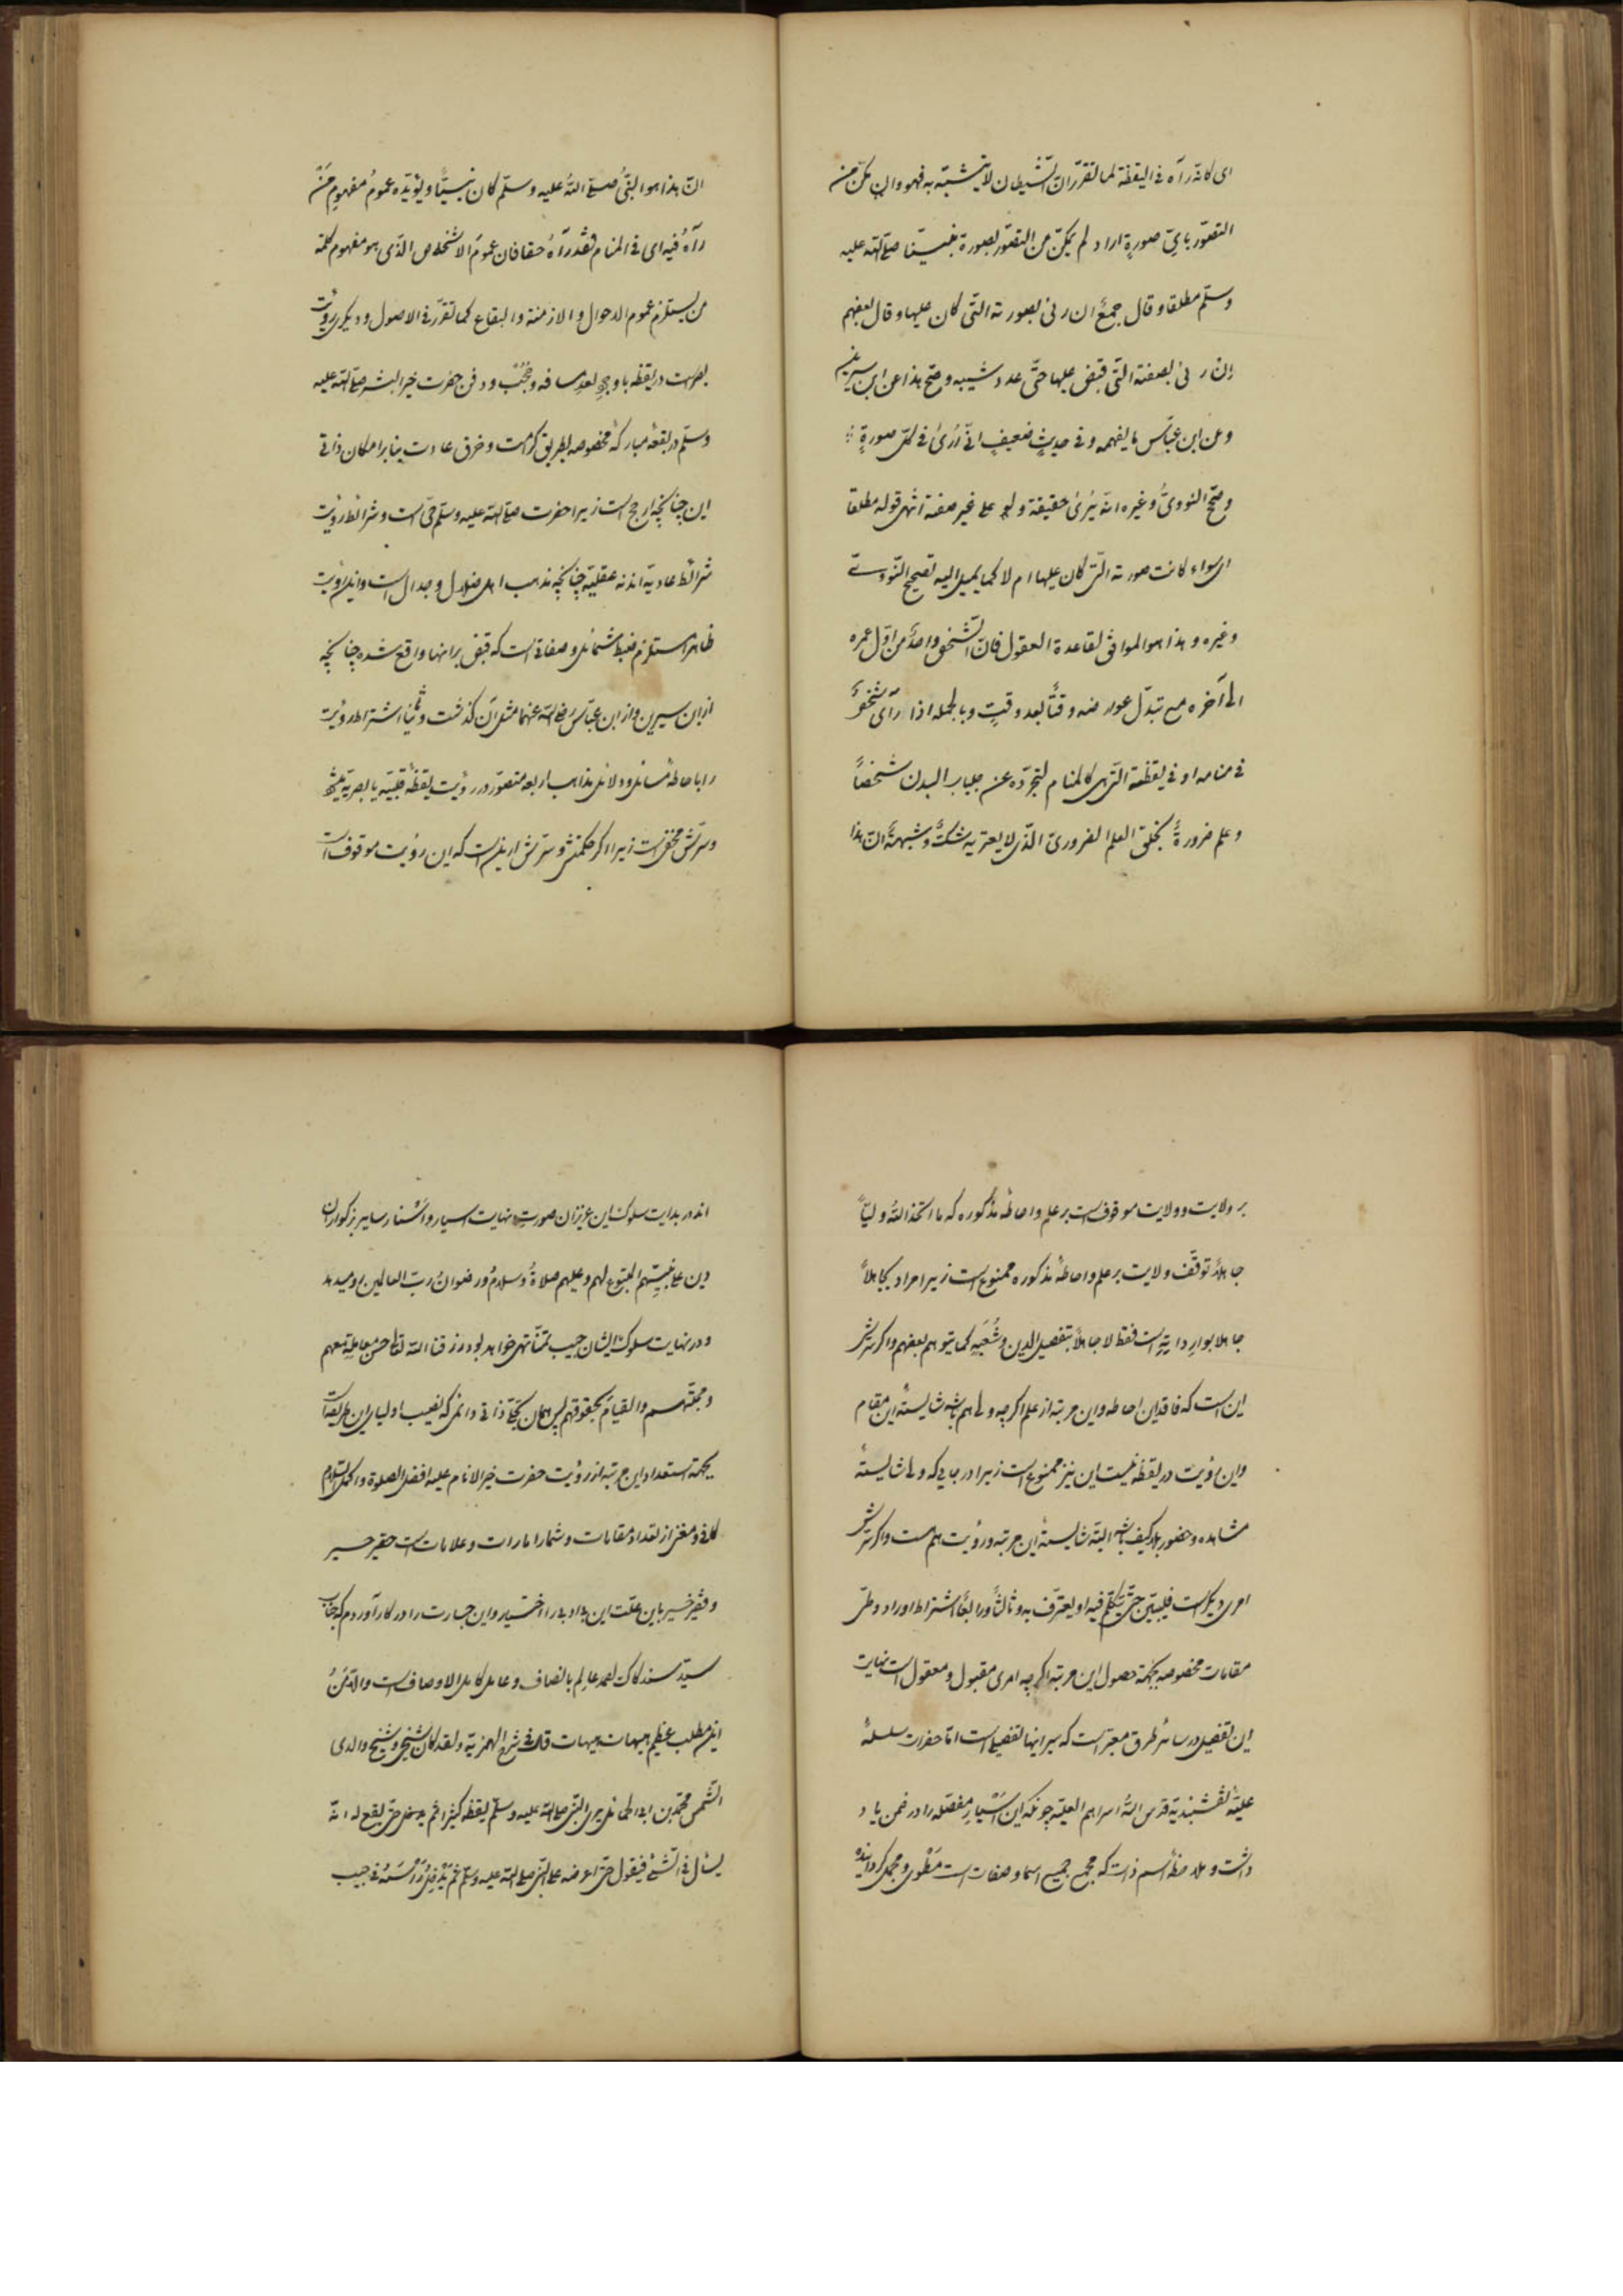 ای کانّه رآه فی الیقظة لما تقرّر انّ الشّیطان لا یتشبّه به فهو و ان مکّن من
التصوّر بایّ صورةٍ اراد لم یمکّن من التصوّر بصورة نبیّنا صلی الله علیه
وسلّم مطلقا و قال جمعٌ ان رئی بصورته التّی کان علیها و قال بعضهم
ان رئی بصفته التّی قبض علیها حتّی عدد شیبه و صحّ هذا عن ابن سیرین
و عن ابن عبّاس ما یفهمه و فی حدیثٍ ضعیفٍ انّی اُرَیٰ فی کلّ صورةٍ
و صحّح النوویُّ و غیره انّه یُرَیٰ حقیقة ولو علی غیر صفته انتهی قوله مطلقا
ای سواء کانت صورته التی کان علیها ام لا کما یمیل الیه تصحیح النّووی
و غیره و هذا هو الموافق لقاعدة العقول فانّ الشّخص واحدٌ من اوّل عمره
الی آخره مع تبدّل عوارضه وقتًا بعد وقتٍ و بالجملة اذا رآی شخصٌ
فی منامه او فی یقظته التّی هی کالمنام لتجرّده عن جلباب البدن شخصًا
و علم ضرورةً بخلق العلم الضروریّ الّذی لا یعتریه شکٌّ و شبهةٌ انّ هذا
انّ هذا هو النبیُّ صلی اللهُ علیه وسلّم کان نبیًّا و یؤیّده عمومُ مفهومِ مَنْ
رآهُ فیه ای فی المنام فقد رآهُ حقا فان عموم الاشخاص الّذی هو مفهوم کلمة
من یستلزم عموم الاحوال و الازمنة و البقاع کما تقرّر فی الاصول و دیکری رؤیت
بصریست در یقظه باوجود بُعد مسافه و حُجُب و دفن حضرت خیر البشر صلی الله علیه
وسلّم در بقعهٔ مبارکهٔ مخصوصه بطریق کرامت و خرق عادت بنابر امکان ذاتی
این چنانچه ارجح است زیرا حضرت صلی الله علیه وسلّم حیّ است و شرائط رؤیت
شرائط عادیّه اند نه عقلیّه چنانچه مذهب اهل ضلال و جدال است و این رؤیت
ظاهرا مستلزم ضبط شمائل و صفاتی است که قبض بر انها واقع شده چنانچه
از ابن سیرین و از ابن عبّاس رضی الله عنهما مثل آن کذشت و ثانیًا اشتراط رؤیت
را باحاطهٔ مسائل و دلائل مذاهب اربعه متصوّر در رؤیت یقظهٔ قلبیّه یا بصریّه
و سرّش مخفی است زیرا اکر حکمتش و سرّش این است که این رؤیت موقوف است
بر ولایت و ولایت موقوف است بر علم و احاطهٔ مذکوره که ما اتّخذ اللهُ ولیًّا
جاهلاً توقّف ولایت بر علم و احاطهٔ مذکوره ممنوع است زیرا مراد بجاهلاً
جاهلا بوارداته است فقط لا جاهلاً بتفصیل الدین و شُعَبِه کما یتوهم بعضهم و اکر سرّش
این است که فاقد این احاطه و این مرتبه از علم اکر چه ولی هم باشد شایستهٔ این مقام
و این رؤیت در یقظه نیست این نیز ممنوع است زیرا در جایی که ولی شایستهٔ
مشاهده و حضور بلاکیف باشد البتّه شایستهٔ این مرتبه و رؤیت هم هست و اکر سرّش
امری دیکر است فلیبیّن حتّی یتکلّم فیه او یعترف به و ثالثًا و رابعًا اشتراط اوراد و طیّ
مقامات مخصوصه بجهة حصول این مرتبه اکرچه امری مقبول و معقول است نهایت
این تفصیل در سائر طرق معتبر است که سیر اینها تفصیلی است امّا حضرات سلسلهٔ
علیّهٔ نقشبندیّه قدس اللهُ اسرارهم العلیّه چونکه این سیار مفصّله را در ضمن یاد
داشت و ملاحظهٔ اسم ذات که مجمع جمیع اسما و صفات است مَطْوی و مجمل کردانیده
اند در بدایت سلوک این عزیزان صورت نهایت اسیار و اَسْتار سایر بزرکواران
دین علی نبیّهم المتبوع لهم و علیهم صلاةُ و سلامُ و رضوانُ ربّ العالمین رو میدهد
و در نهایت سلوک ایشان حبیب تمنّا تهی خواهد بود رزقنا الله تعالی حسن معاملة معهم
و محبّتهم و القیام بحقوقهم پس همان تجلّی ذاتی دائمی که نصیب اولیای این طریقت است
بجهة استعداد این مرتبه از رؤیت حضرت خیر الانام علیه افضل الصلوة و اکمل السّلام
کافی و مغنی از تعداد مقامات و شمار امارات و علامات است حقیر حسیر
و فقیر خسیر باین علّت این را اختیار و این جسارت را در کار آوردم که جناب
سیّد سند کاک احمد عالم باانصاف و عامل کامل الاوصاف است و الّا مَنْ
این مطلب عظیم هیهات هیهات قال فی شرح الهمزیّه و لقد کان شیخی و شیخ والدی
الشّمس محمّد بن ابی الحمائل یری النبّی صلی الله علیه وسلّم یقظة کثیرا ثم حتّی یقع له انّه
یسئل فی الشّئ فیقول حتّی اعرضه علی النبّی صلی الله علیه وسلّم ثمّ یُدْخِلُ رَأْسَهُ فی جیب